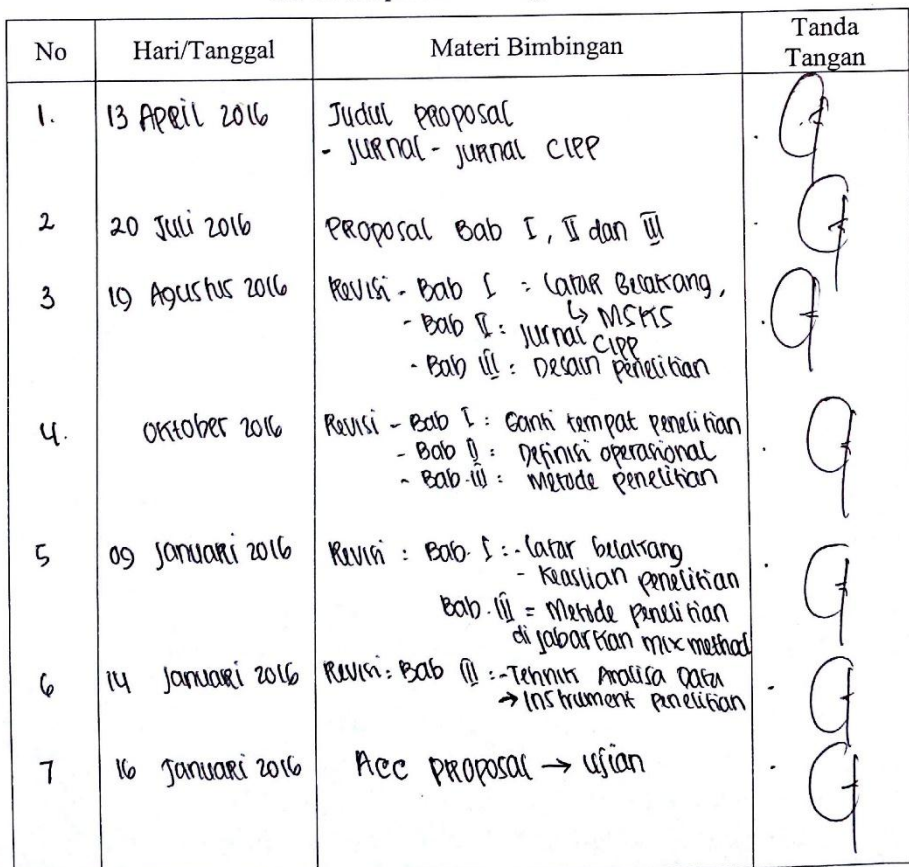 No Hari/Tanggal Materi Bimbingan Tanda Tangan
1. 13 April 2016 Judul proposal
- Jurnal - jurnal CIPP
2 20 Juli 2016 Proposal Bab I, II dan III
3 19 Agustus 2016 Revisi - Bab I : Latar Belakang,
↳ MSKS
- Bab II : Jurnal CIPP
- Bab III : Desain penelitian
4. Oktober 2016 Revisi - Bab I : Ganti tempat penelitian
- Bab II : Definisi operasional
- Bab III : Metode penelitian
5 09 Januari 2016 Revisi : Bab. I : - Latar belakang
- Keaslian penelitian
Bab. III = Metode penelitian
di jabarkan mix method
6 14 Januari 2016 Revisi : Bab III : - Tehnik Analisa Data
→ Instrument penelitian
7 16 Januari 2016 Acc proposal → ujian